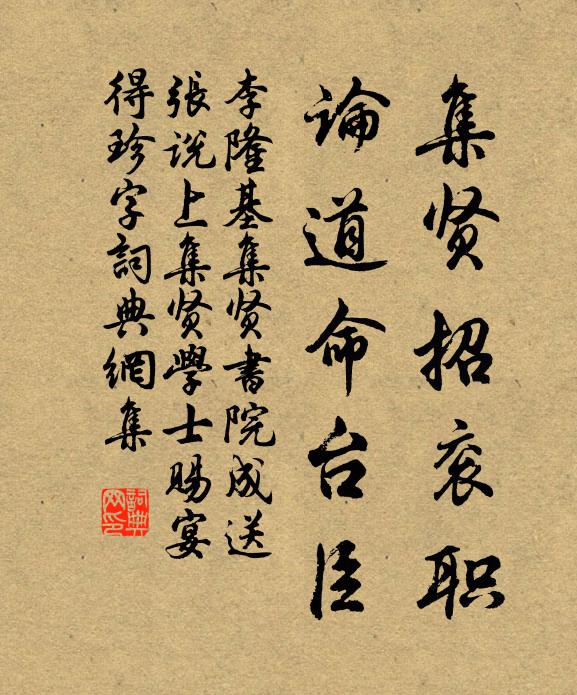 集贤招衮职
论道命台臣
李隆基集贤書院成送
張説上集贤學士賜宴
得珍字詞典網集
詞典
网印